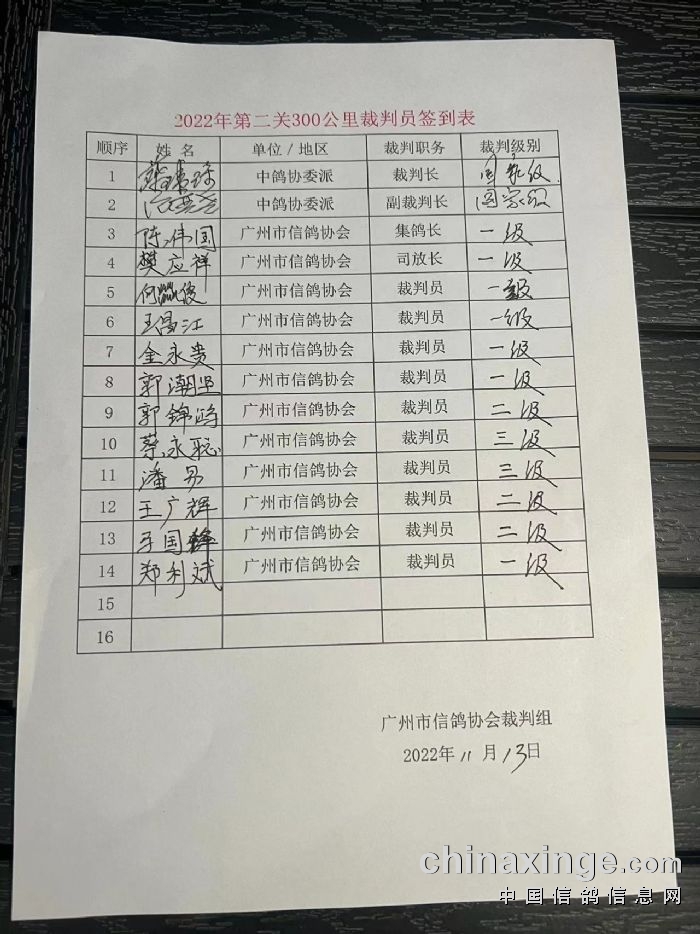 2022年第二关300公里裁判员签到表
顺序 姓名 单位/地区 裁判职务 裁判级别
1 中鸽协委派 裁判长 国家级
2 中鸽协委派 副裁判长 国家级
3 陈伟国 广州市信鸽协会 集鸽长 一级
4 樊应祥 广州市信鸽协会 司放长 一级
5 广州市信鸽协会 裁判员 一级
6 广州市信鸽协会 裁判员 一级
7 金永贵 广州市信鸽协会 裁判员 一级
8 郭潮坚 广州市信鸽协会 裁判员 一级
9 郭锦鸿 广州市信鸽协会 裁判员 二级
10 蔡永聪 广州市信鸽协会 裁判员 三级
11 广州市信鸽协会 裁判员 三级
12 王广辉 广州市信鸽协会 裁判员 二级
13 广州市信鸽协会 裁判员 二级
14 郑利斌 广州市信鸽协会 裁判员 一级
15
16
广州市信鸽协会裁判组
2022年11月13日
chinaxinge.com
中国信鸽信息网